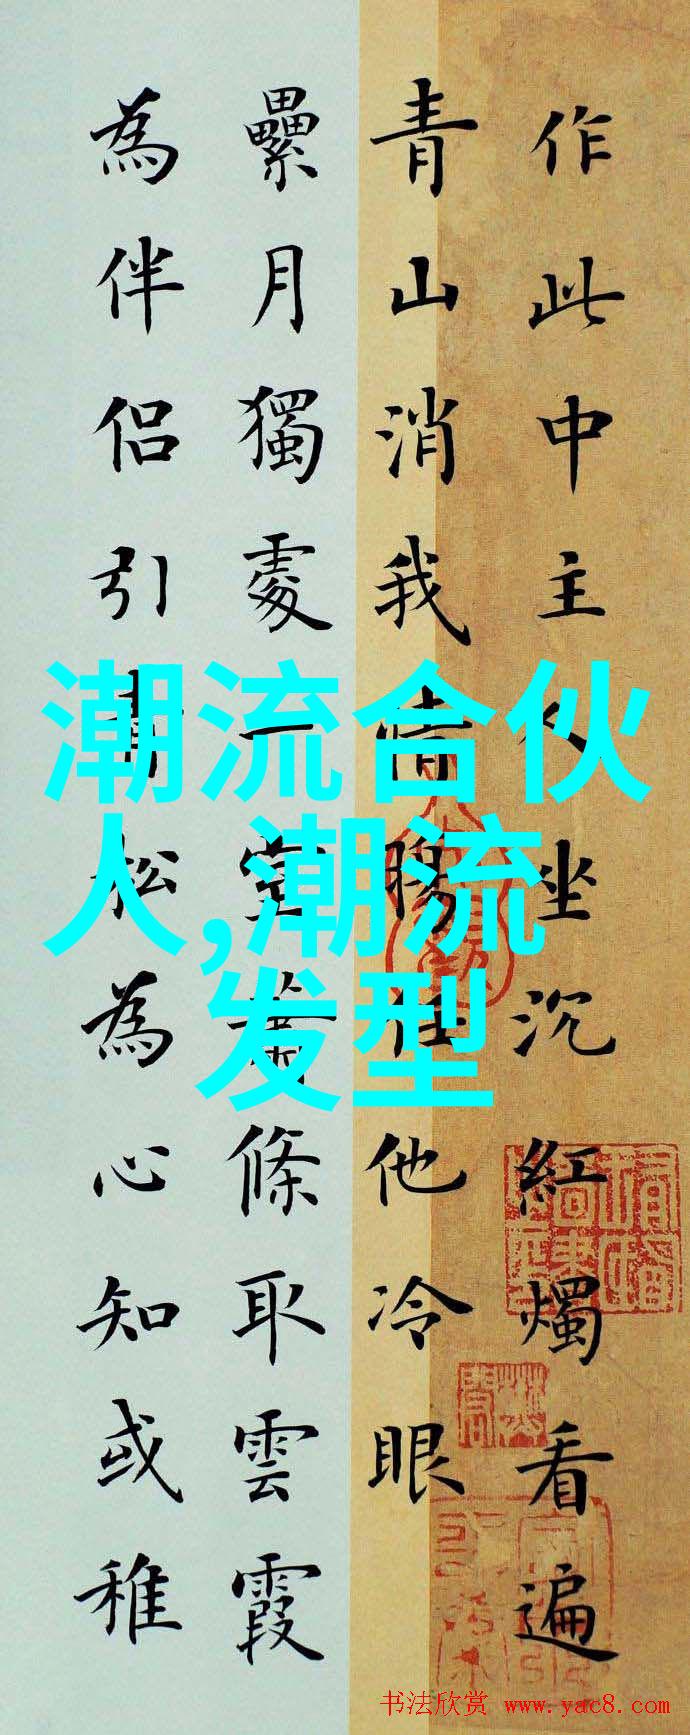 作此中主人坐沉紅燭看遍
青山消我情腸任他冷眼
纍月獨處一室蕭條取雲霞
為伴侶引青松為心知或稚
潮流合伙
人,潮流
发型
书法欣赏 www.yac8.com